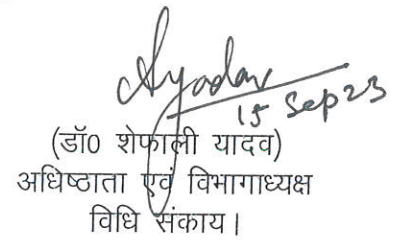 Syadav
15 Sep 23
(डॉ0 शेफाली यादव)
अधिष्ठाता एवं विभागाध्यक्ष
विधि संकाय।